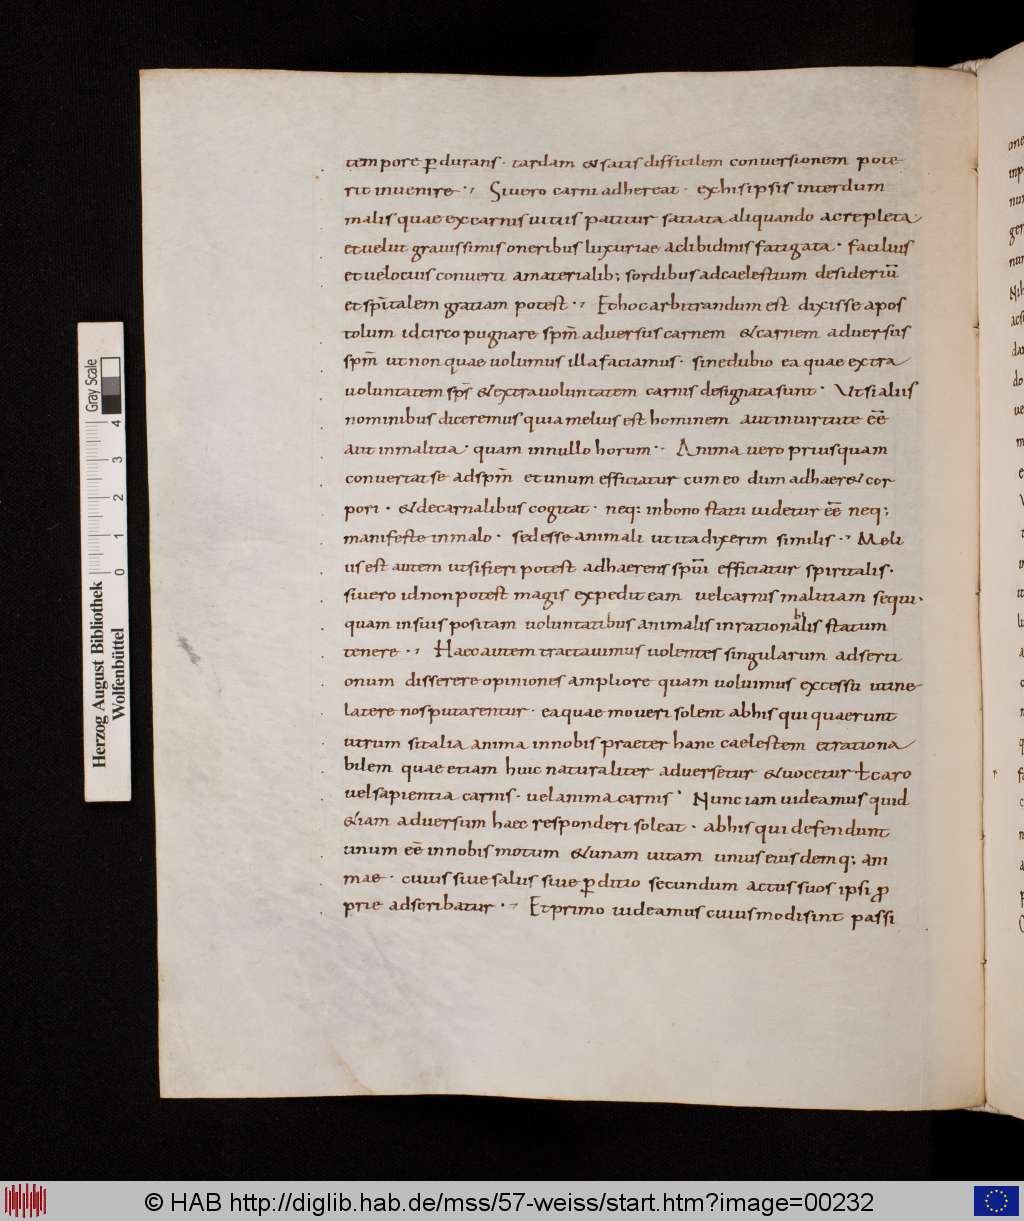 tempore p̄durans· tardam & satis difficilem conversionem pote
rit invenire·, Siuero carni adhereat· exhis ipsis interdum
malis quae excarnis uitiis patitur satiata aliquando ac repleta
et uelut grauissimis oneribus luxuriae ac libidinis fatigata· facilius
et uelocius converti amaterialib; sordibus adcaelestium desideriū
et sp̄italem gratiam potest·, Et hoc arbitrandum est dixisse apos
tolum idcirco pugnare sp̄m adversus carnem & carnem adversus
sp̄m ut non quae uolumus illa faciamus· sinedubio ea quae extra
uoluntatem sp̄s & extra uoluntatem carnis designata sunt· Ut si aliis
nominibus diceremus quia melius est hominem aut in uirtute eēe
aut in malitia· quam in nullo horum·· Anima uero priusquam
convertat se ad sp̄m et unum efficiatur cum eo dum adhaer& cor
pori· & decarnalibus cogitat· neq: inbono statu uidetur eēe neq;
manifeste in malo· sed esse animali ut ita dixerim similis·, Meli
us est autem ut si fieri potest adhaerens spūi efficiatur spiritalis·
siuero id non potest magis expedit eam uel carnis malitiam sequi·
quam in suis positam uoluntatibus animalis inrationabilis statum
tenere·, Haec autem tractauimus uolentes singularum adserti
onum disserere opiniones ampliore quam uoluimus excessu utine
latere nos putarentur· ea quae moueri solent abhis qui quaerunt
utrum sit alia anima innobis praeter hanc caelestem et rationa
bilem quae etiam huic naturaliter adversetur & uocetur ł caro
uel sapientia carnis· uel anima carnis· Nunc iam uideamus quid
&iam adversum haec responderi soleat· abhis qui defendunt
unum eē innobis motum & unam uitam unius eiusdemq; ani
mae· cuius siue salus siue p̄ditio secundum actus suos ipsi pro
prie adscribatur·, Et primo uideamus cuiusmodi sint passi
Gray Scale
0 1 2 3 4
Herzog August Bibliothek
Wolfenbüttel
© HAB http://diglib.hab.de/mss/57-weiss/start.htm?image=00232